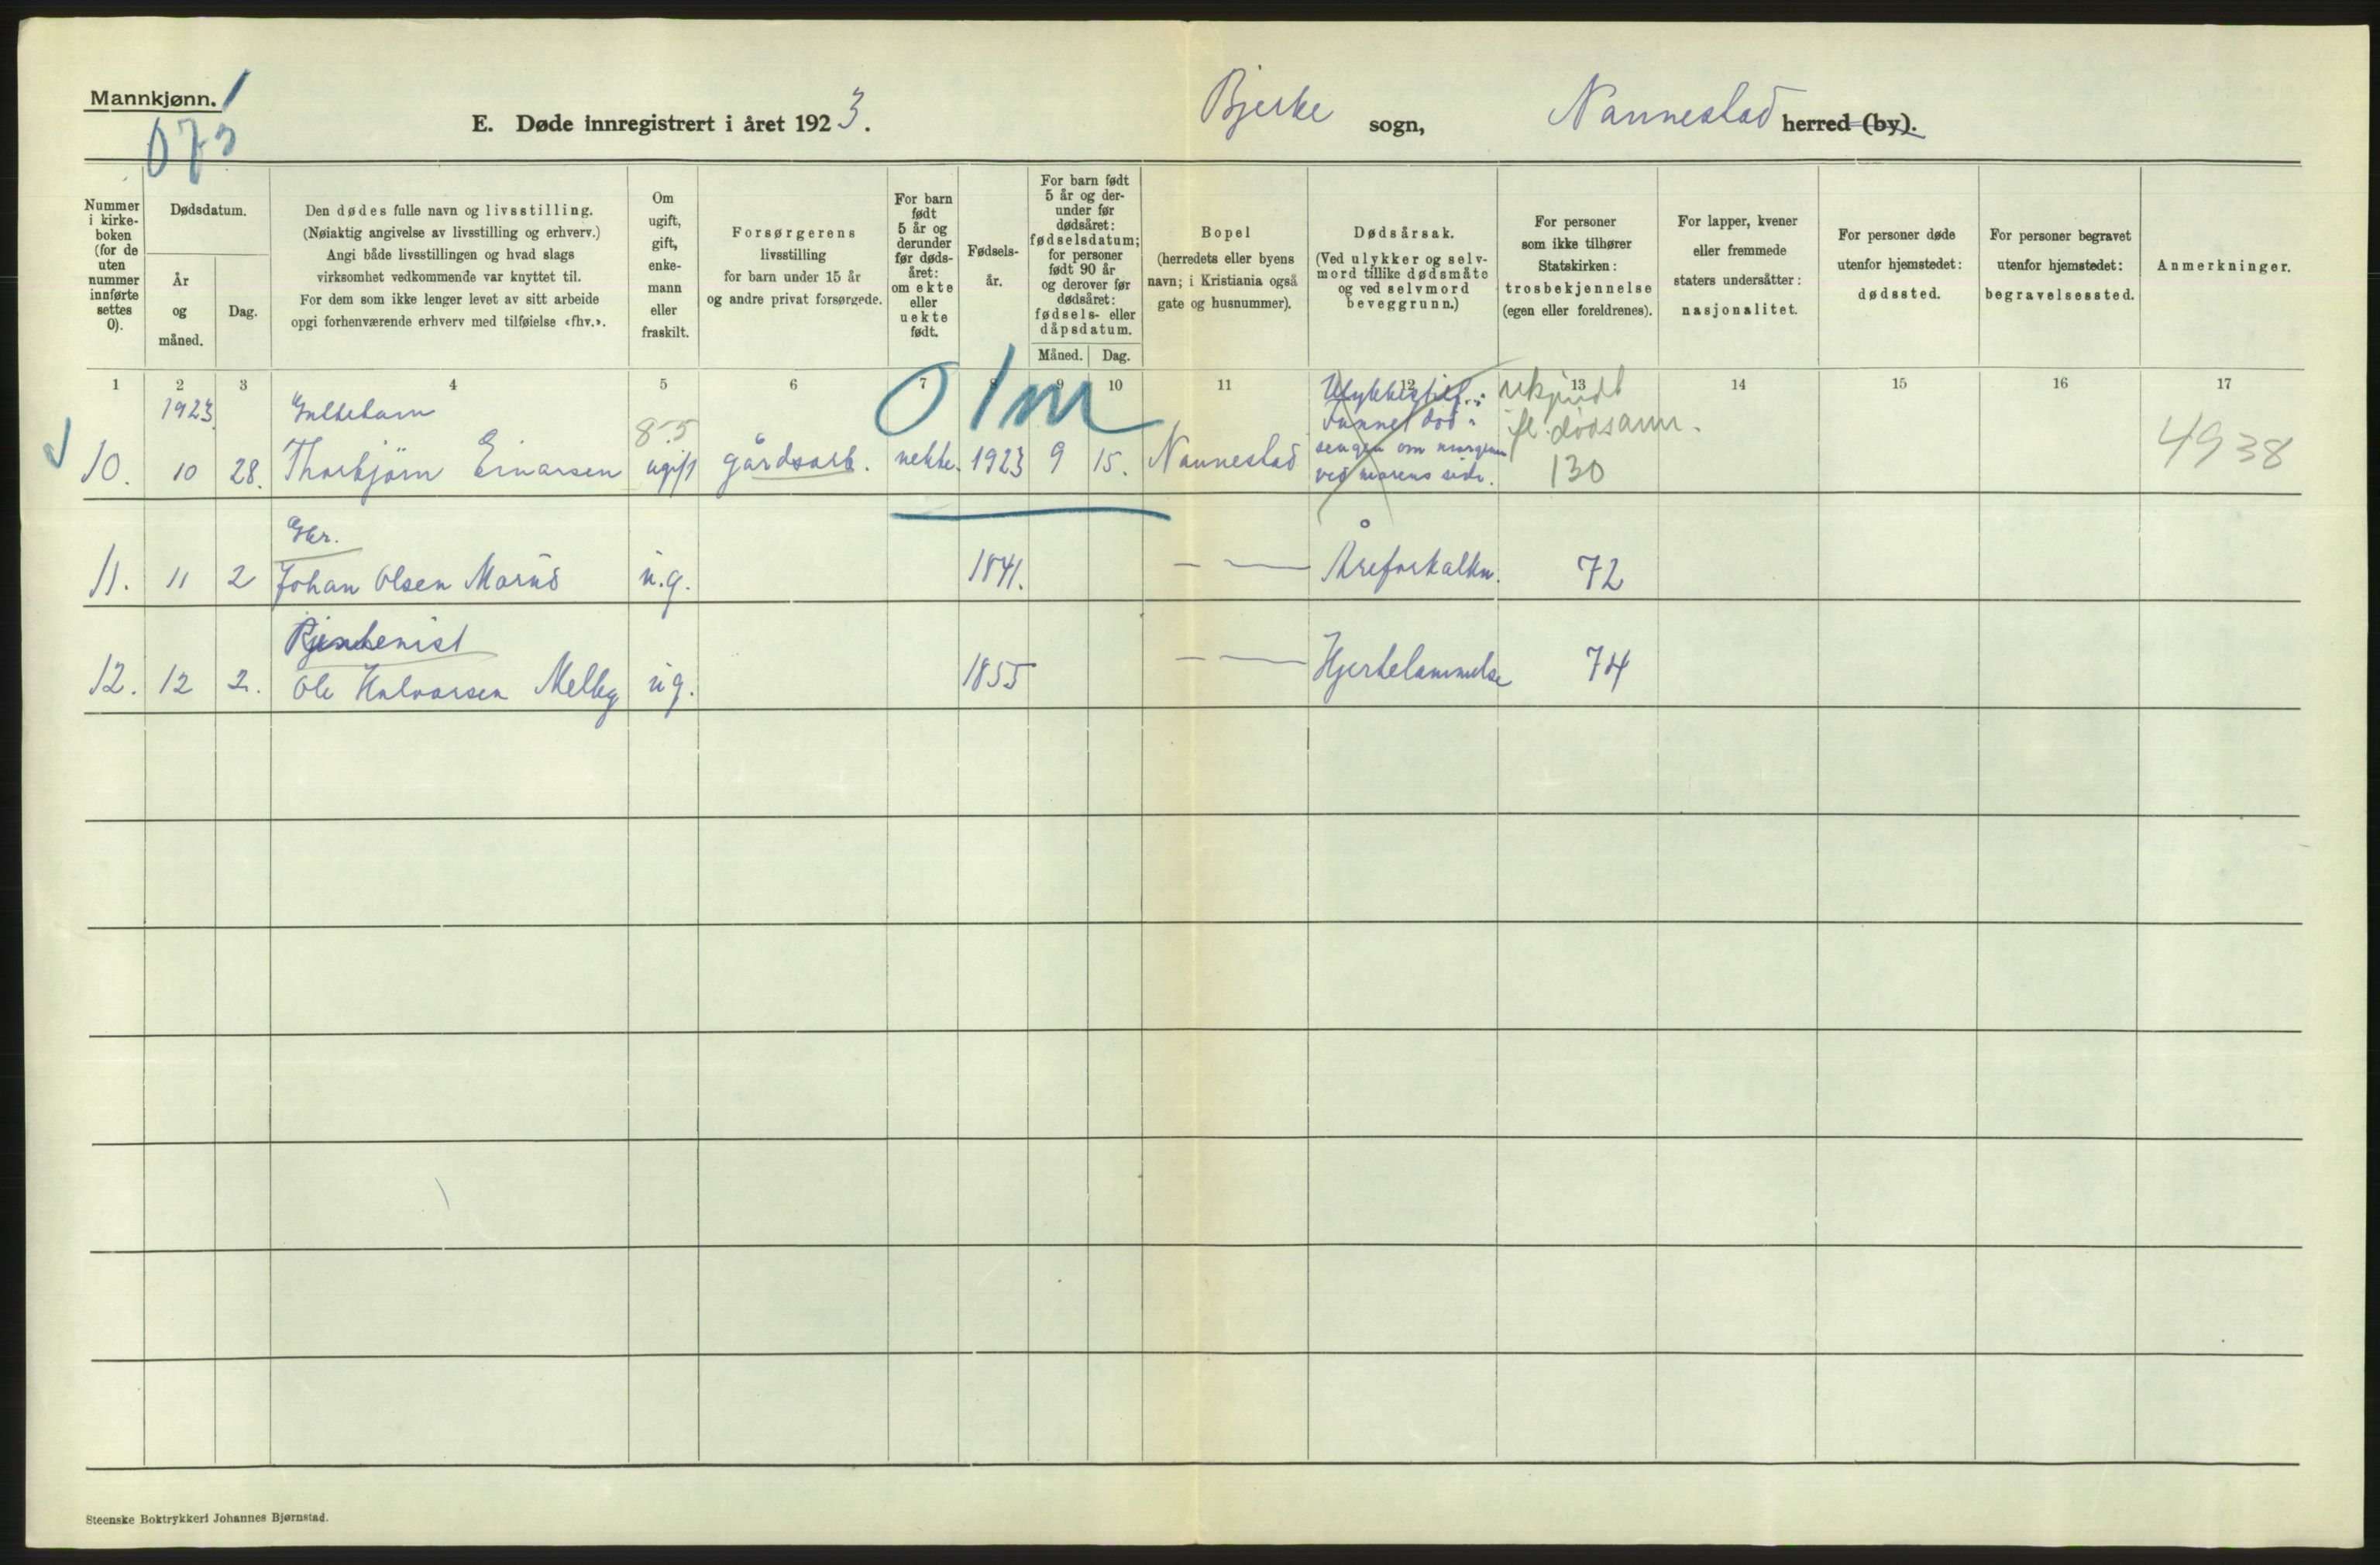 Mannkjønn. 1
E. Døde innregistrert i året 1923.
Bjerke sogn,
Nannestad herred (by).
Nummer i kirke- boken (for de uten nummer innførte settes 0).
Dødsdatum.
År og måned.
Dag.
Den dødes fulle navn og livsstilling.
(Nøiaktig angivelse av livsstilling og erhverv.)
Angi både livsstillingen og hvad slags
virksomhet vedkommende var knyttet til.
For dem som ikke lenger levet av sitt arbeide
opgi forhenværende erhverv med tilføielse «fhv.».
Om ugift, gift, enke- mann eller fraskilt.
Forsørgerens
livsstilling
for barn under 15 år
og andre privat forsørgede.
For barn født 5 år og derunder før døds- året: om ekte eller uekte født.
Fødsels- år.
For barn født 5 år og der- under før dødsåret: fødselsdatum; for personer født 90 år og derover før dødsåret: fødsels- eller dåpsdatum.
Måned. Dag.
Bopel
(herredets eller byens
navn; i Kristiania også
gate og husnummer).
Dødsårsak.
(Ved ulykker og selv-
mord tillike dødsmåte
og ved selvmord
beveggrunn.)
For personer
som ikke tilhører
Statskirken:
trosbekjennelse
(egen eller foreldrenes).
For lapper, kvener
eller fremmede
staters undersåtter:
nasjonalitet.
For personer døde
utenfor hjemstedet:
dødssted.
For personer begravet
utenfor hjemstedet:
begravelsessted.
Anmerkninger.
1 2 3 4 5 6 7 8 9 10 11 12 13 14 15 16 17
1923
0/m
Ulykkestilf.: ukjendt
Funnet død i fl. dødsanm.
85
10. 10 28. Thorbjørn Einarsen ugift gårdsarb. uekte. 1923 9 15. Nannestad sengen om morgenen
ved morens side. 130
4938
Gbr.
11. 11 2 Johan Olsen Mørud u.g. 1841. — — Åreforkalkn. 72
12. 12 2. Ole Halvorsen Melby ug. 1855 — — Hjertelammelse 74
Steenske Boktrykkeri Johannes Bjørnstad.